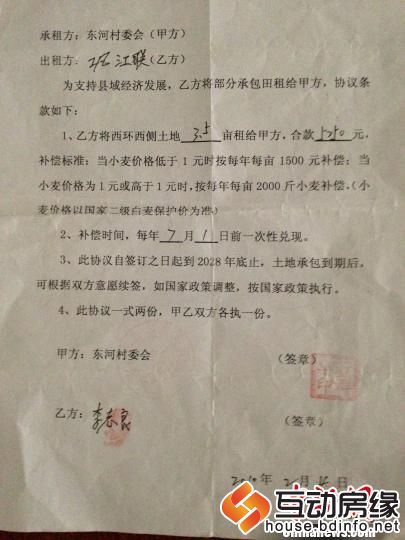 承租方：东河村委会（甲方）
出租方： 江联(乙方)
为支持县域经济发展，乙方将部分承包田租给甲方，协议条
款如下：
1、乙方将西环西侧土地 3.5 亩租给甲方，合款 5250 元，
补偿标准：当小麦价格低于 1 元时按每年每亩 1500 元补偿；当
小麦价格为 1 元或高于 1 元时，按每年每亩 2000 斤小麦补偿。（小
麦价格以国家二级白麦保护价为准）
2、补偿时间，每年 7 月 1 日前一次性兑现。
3、此协议自签订之日起到 2028 年底止，土地承包到期后，
可根据双方意愿续签，如国家政策调整，按国家政策执行。
4、此协议一式两份，甲乙双方各执一份。
甲方：东河村委会 （签章）
乙方：李志良 （签章）
年 2 月 日
互动房缘
house.bdinfo.net